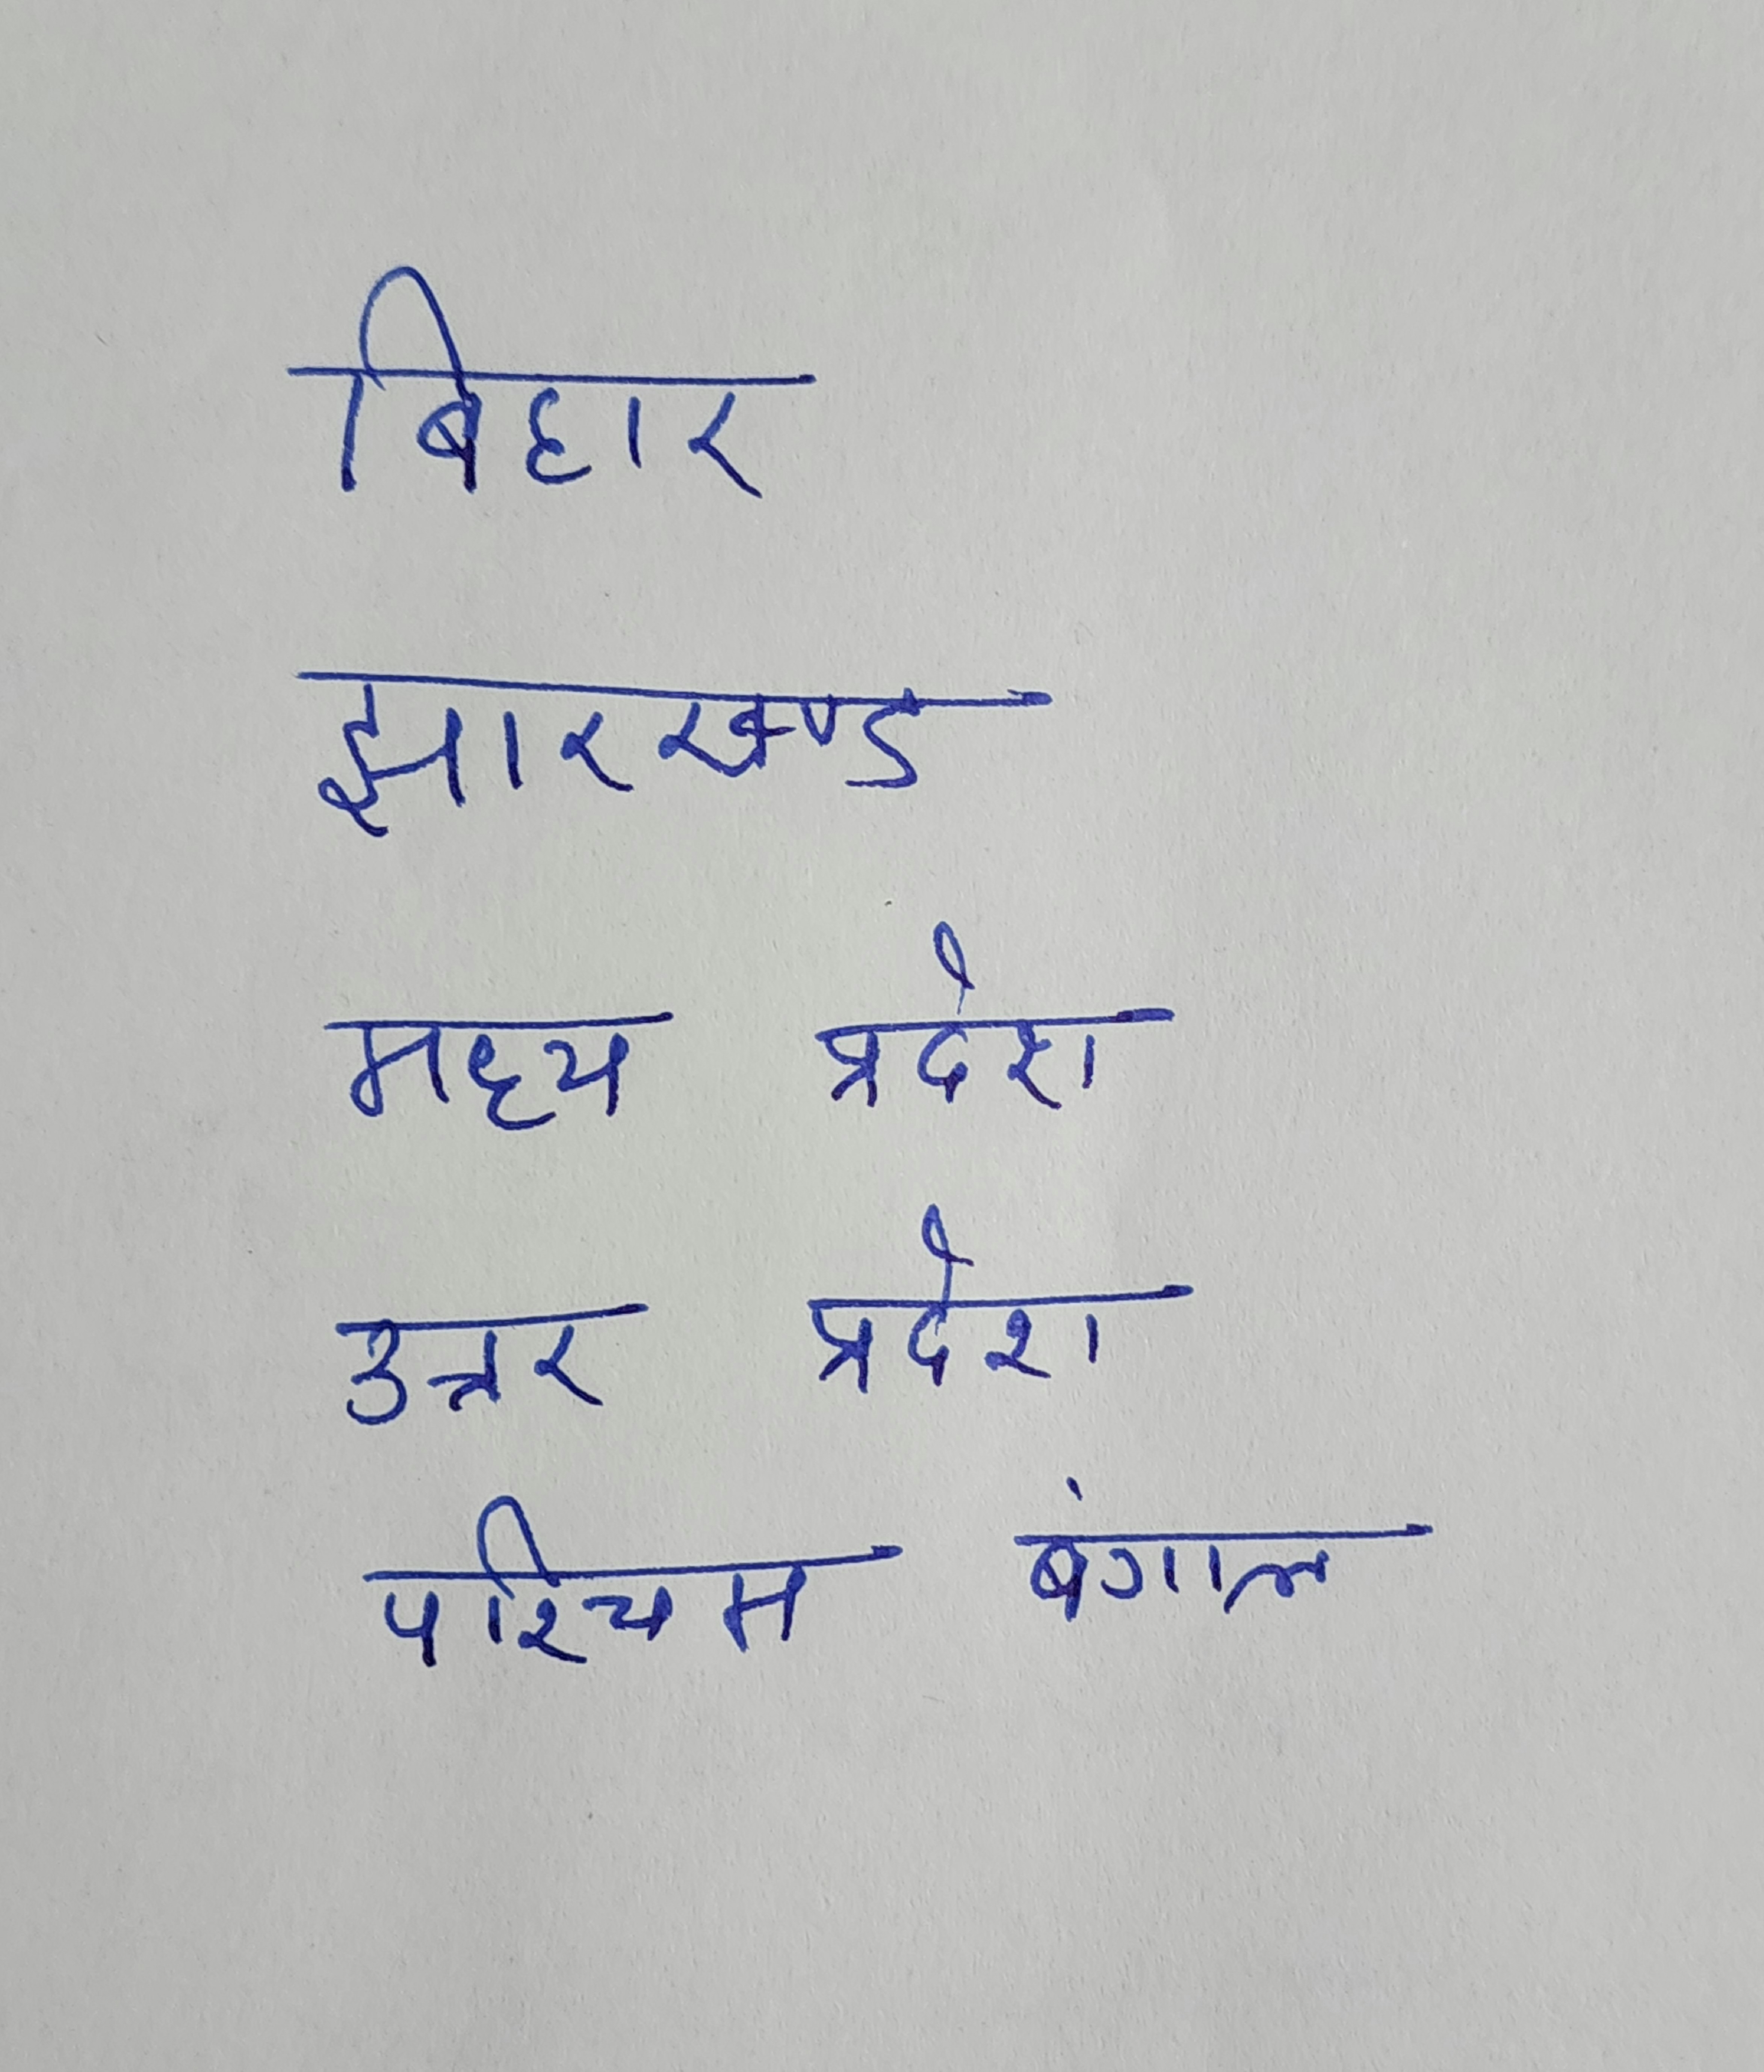 बिहार
झारखण्ड
मध्य प्रदेश
उत्तर प्रदेश
पश्चिम बंगाल